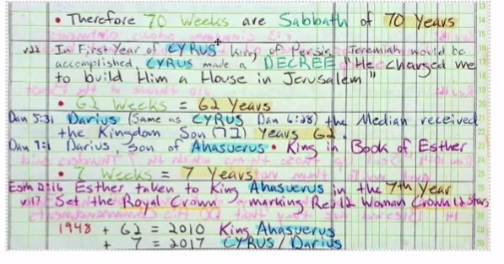 • Therefore 70 Weeks are Sabbath of 70 Years
v22 In First Year of CYRUS King of Persia Jeremiah would be
accomplished, CYRUS made a DECREE "He charged me
to build Him a House in Jerusalem"
• 62 Weeks = 62 Years
Dan 5:31 Darius (Same as CYRUS Dan 6:28) the Median received
the Kingdom Son (72) Years 62.
Dan 9:1 Darius, Son of Ahasuerus • King in Book of Esther
• 7 Weeks = 7 Years
Esth 2:16 Esther taken to King Ahasuerus in the 7th Year
v17 Set the Royal Crown, marking Rev 12 Woman Crown 12 Stars
1948 + 62 = 2010 King Ahasuerus
+ 7 = 2017 CYRUS/Darius